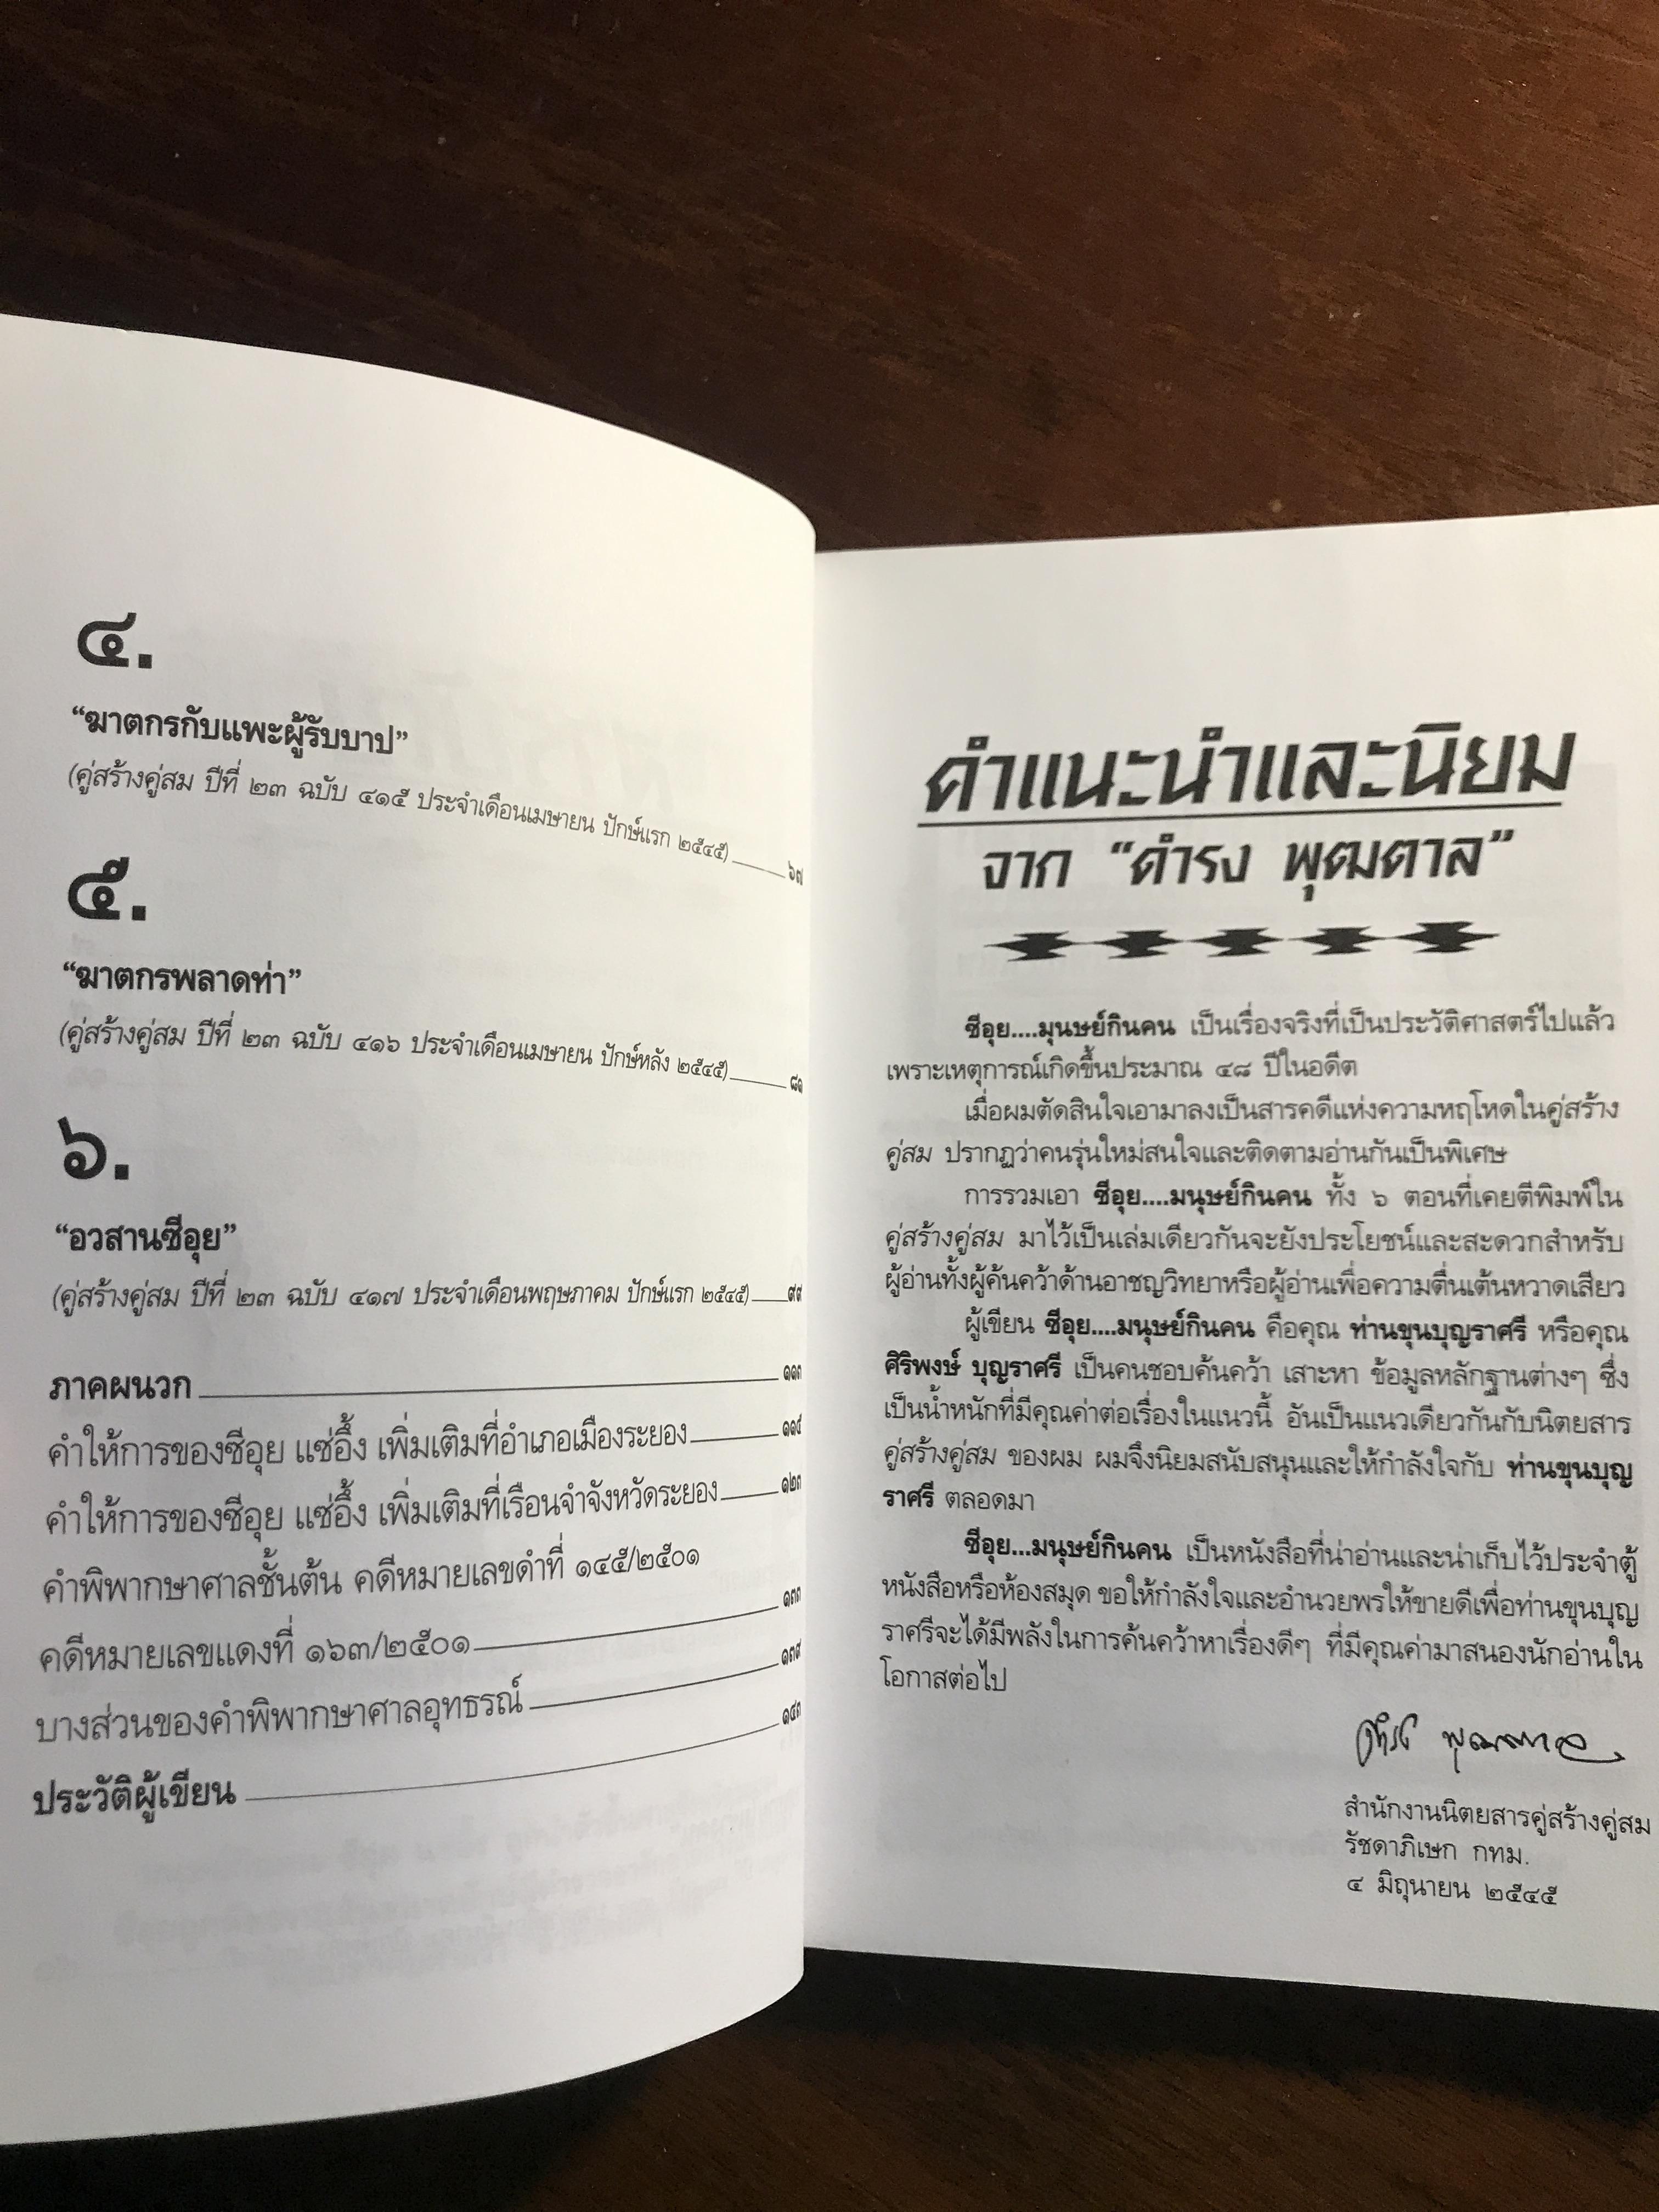 ๔.
“ฆาตกรกับแพะผู้รับบาป”
(คู่สร้างคู่สม ปีที่ ๒๓ ฉบับ ๔๑๕ ประจำเดือนเมษายน ปักษ์แรก ๒๕๔๕) ๖๗
๕.
“ฆาตกรพลาดท่า”
(คู่สร้างคู่สม ปีที่ ๒๓ ฉบับ ๔๑๖ ประจำเดือนเมษายน ปักษ์หลัง ๒๕๔๕) ๘๑
๖.
“อวสานซีอุย”
(คู่สร้างคู่สม ปีที่ ๒๓ ฉบับ ๔๑๗ ประจำเดือนพฤษภาคม ปักษ์แรก ๒๕๔๕) ๙๙
ภาคผนวก ๑๑๓
คำให้การของซีอุย แซ่อึ้ง เพิ่มเติมที่อำเภอเมืองระยอง
คำให้การของซีอุย แซ่อึ้ง เพิ่มเติมที่เรือนจำจังหวัดระยอง
คำพิพากษาศาลชั้นต้น คดีหมายเลขดำที่ ๑๔๕/๒๕๐๑
คดีหมายเลขแดงที่ ๑๖๓/๒๕๐๑
บางส่วนของคำพิพากษาศาลอุทธรณ์ ๑๓๙
ประวัติผู้เขียน ๑๔๓
คำแนะนำและนิยม
จาก “ดำรง พุฒตาล”
ซีอุย....มุนษย์กินคน เป็นเรื่องจริงที่เป็นประวัติศาสตร์ไปแล้ว
เพราะเหตุการณ์เกิดขึ้นประมาณ ๔๘ ปีในอดีต
เมื่อผมตัดสินใจเอามาลงเป็นสารคดีแห่งความหฤโหดในคู่สร้าง
คู่สม ปรากฏว่าคนรุ่นใหม่สนใจและติดตามอ่านกันเป็นพิเศษ
การรวมเอา ซีอุย....มนุษย์กินคน ทั้ง ๖ ตอนที่เคยตีพิมพ์ใน
คู่สร้างคู่สม มาไว้เป็นเล่มเดียวกันจะยังประโยชน์และสะดวกสำหรับ
ผู้อ่านทั้งผู้ค้นคว้าด้านอาชญวิทยาหรือผู้อ่านเพื่อความตื่นเต้นหวาดเสียว
ผู้เขียน ซีอุย....มนุษย์กินคน คือคุณ ท่านขุนบุญราศรี หรือคุณ
ศิริพงษ์ บุญราศรี เป็นคนชอบค้นคว้า เสาะหา ข้อมูลหลักฐานต่างๆ ซึ่ง
เป็นน้ำหนักที่มีคุณค่าต่อเรื่องในแนวนี้ อันเป็นแนวเดียวกันกับนิตยสาร
คู่สร้างคู่สม ของผม ผมจึงนิยมสนับสนุนและให้กำลังใจกับ ท่านขุนบุญ
ราศรี ตลอดมา
ซีอุย...มนุษย์กินคน เป็นหนังสือที่น่าอ่านและน่าเก็บไว้ประจำตู้
หนังสือหรือห้องสมุด ขอให้กำลังใจและอำนวยพรให้ขายดีเพื่อท่านขุนบุญ
ราศรีจะได้มีพลังในการค้นคว้าหาเรื่องดีๆ ที่มีคุณค่ามาสนองนักอ่านใน
โอกาสต่อไป
ดำรง พุฒตาล
สำนักงานนิตยสารคู่สร้างคู่สม
รัชดาภิเษก กทม.
๔ มิถุนายน ๒๕๔๕